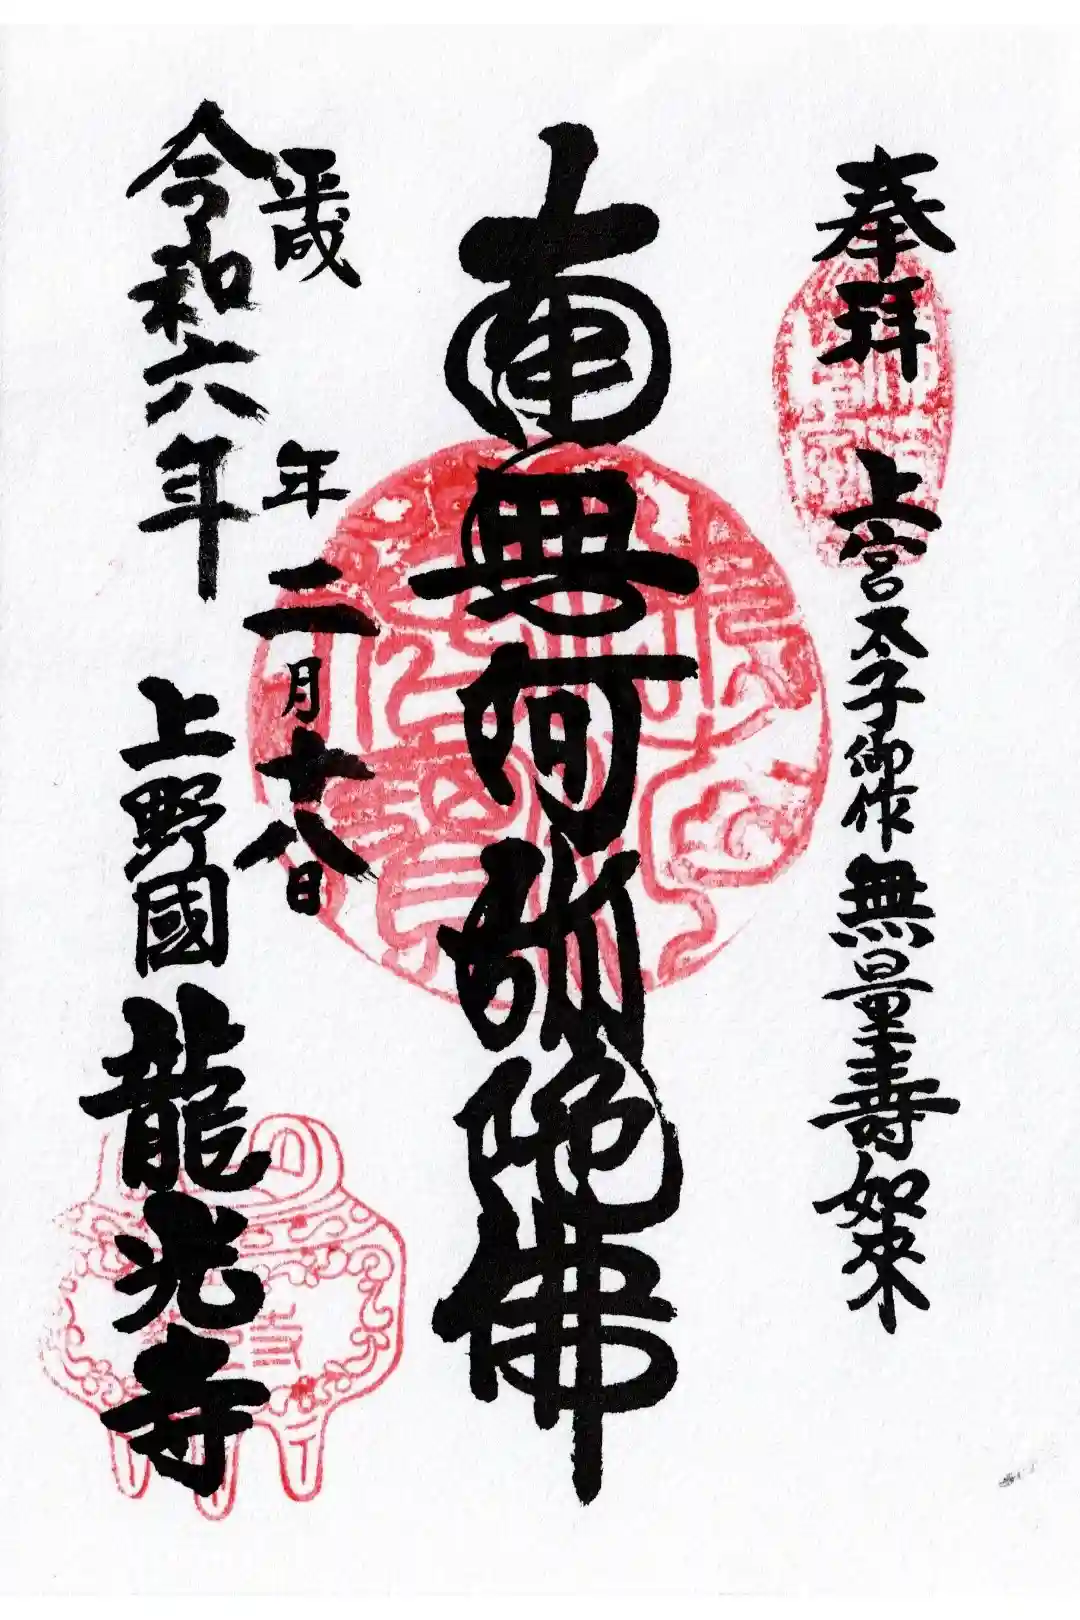 奉拜
上宮太子御作無量壽如來
南無阿弥陀佛
平成 年二月十八日
令和六年
上野國龍光寺